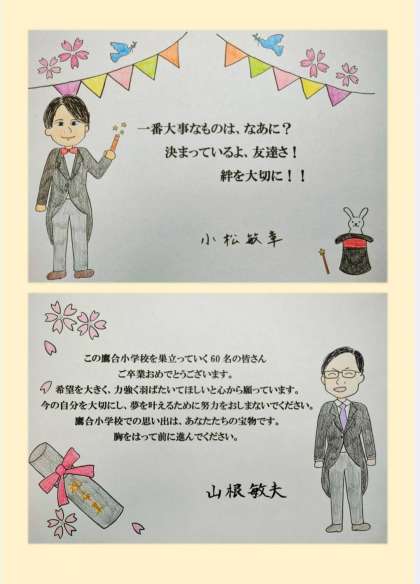 一番大事なものは、なあに？
決まっているよ、友達さ！
絆を大切に！！
小松敏幸
この鷹合小学校を巣立っていく60名の皆さん
ご卒業おめでとうございます。
希望を大きく、力強く羽ばたいてほしいと心から願っています。
今の自分を大切にし、夢を叶えるために努力をおしまないでください。
鷹合小学校での思い出は、あなたたちの宝物です。
胸をはって前に進んでください。
山根敏夫